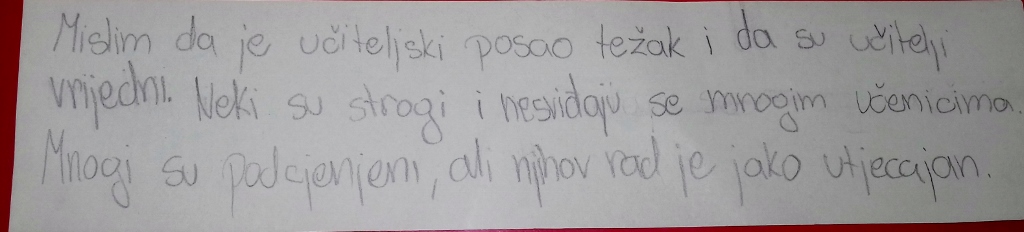 Mislim da je učiteljski posao težak i da su učitelji
vrijedni. Neki su strogi i nesviđaju se mnogim učenicima.
Mnogi su podcjenjeni, ali njihov rad je jako utjecajan.